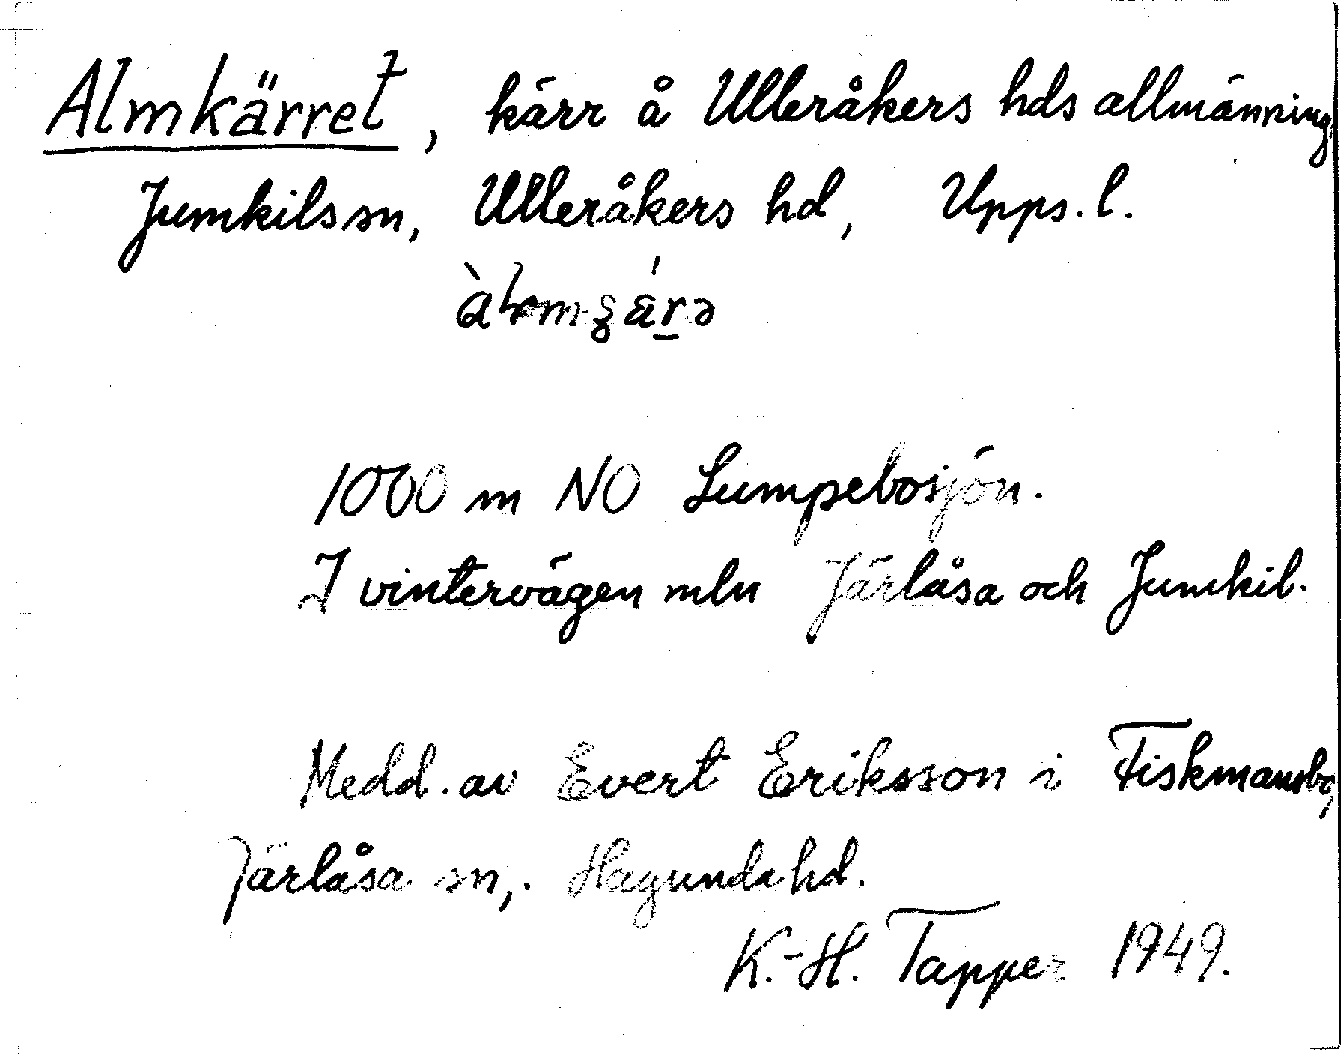 Almkärret, kärr å Ulleråkers hds allmänning
Jumkils sn, Ulleråkers hd, Upps. l.
1000 m NO Lumpebosjön.
I vintervägen mln Järlåsa och Jumkil.
Medd. av Evert Eriksson i Fiskmansbo,
Järlåsa sn,. Hagunda hd.
K.-H. Tapper 1949.